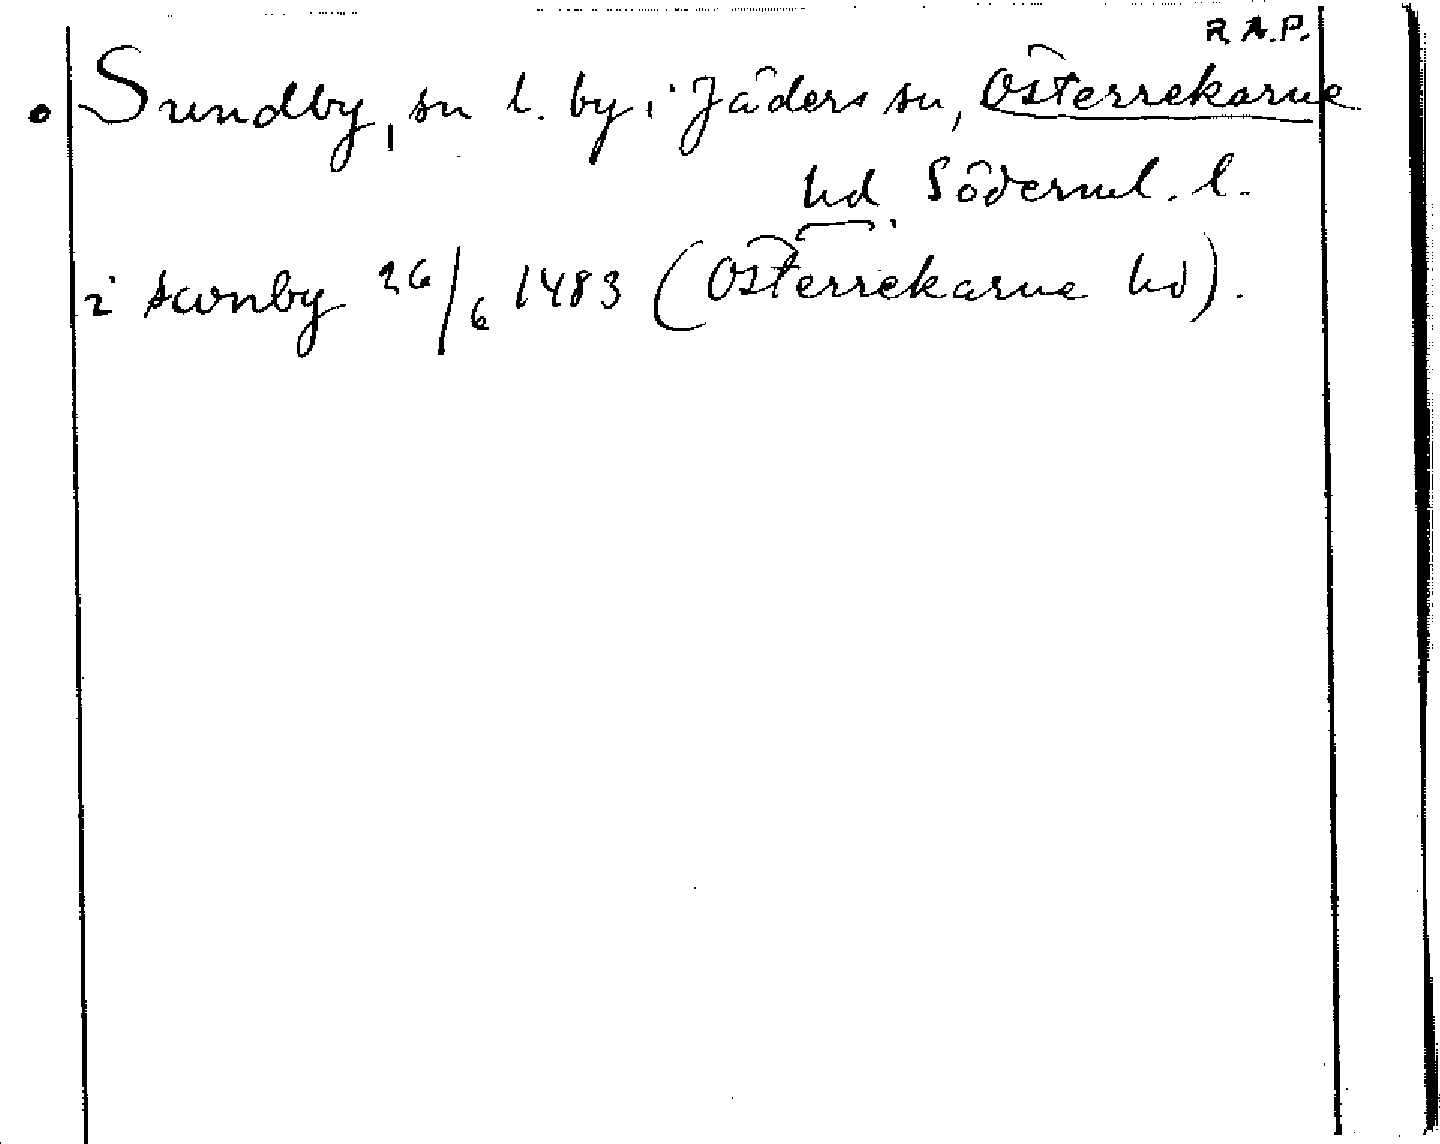 R.A.P.
Sundby, sn l. by i Jäders sn, Österrekarne
hd. Söderml. l.
i swnby 26/6 1483 (Österrekarne hd).